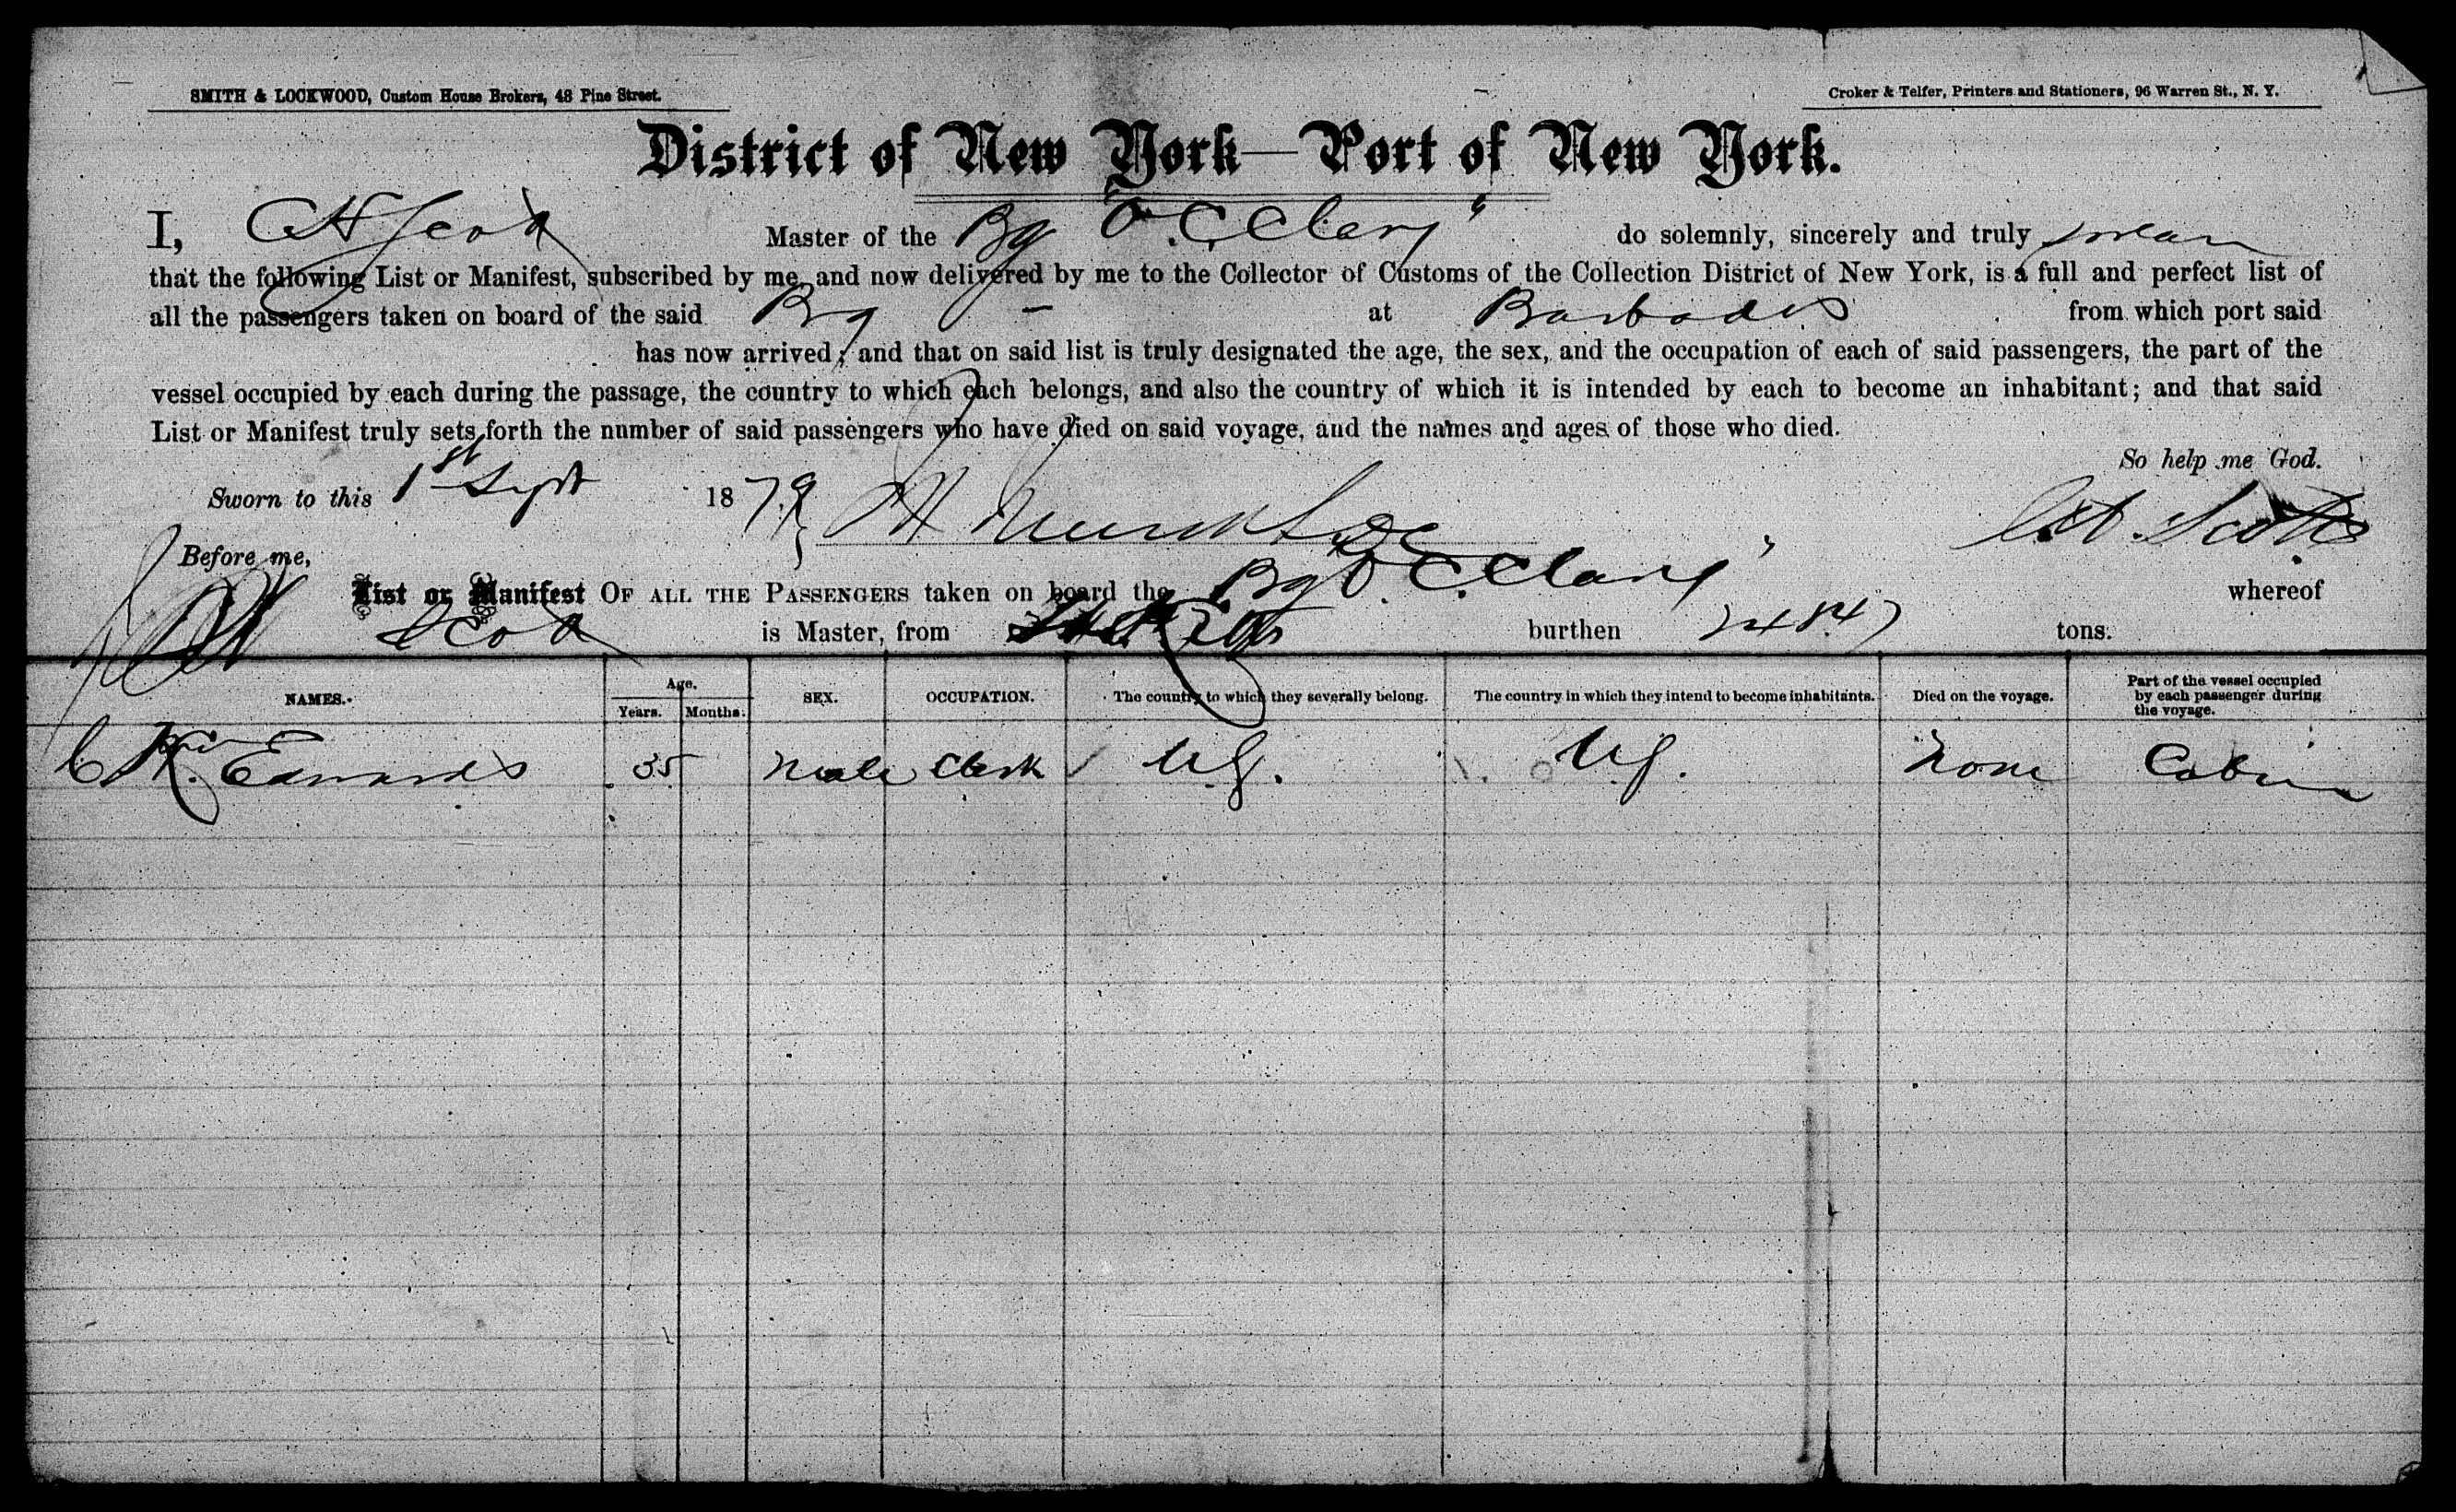 SMITH & LOCKWOOD, Custom House Brokers, 48 Pine Street.
Croker & Telfer, Printers and Stationers, 96 Warren St., N. Y.
District of New York—Port of New York.
I, C H Scott Master of the Bg "O. C. Clary" do solemnly, sincerely and truly swear
that the following List or Manifest, subscribed by me, and now delivered by me to the Collector of Customs of the Collection District of New York, is a full and perfect list of
all the passengers taken on board of the said Bg at Barbados from which port said
has now arrived; and that on said list is truly designated the age, the sex, and the occupation of each of said passengers, the part of the
vessel occupied by each during the passage, the country to which each belongs, and also the country of which it is intended by each to become an inhabitant; and that said
List or Manifest truly sets forth the number of said passengers who have died on said voyage, and the names and ages of those who died.
So help me God.
Sworn to this 1st Sept 1879 C. H. Scott
Before me,
List or Manifest OF ALL THE PASSENGERS taken on board the Bg "O. C. Clary" whereof
Scott is Master, from burthen tons.
NAMES. Age. Years. Months. SEX. OCCUPATION. The country to which they severally belong. The country in which they intend to become inhabitants. Died on the voyage. Part of the vessel occupied by each passenger during the voyage.
Edwards 35 Male Clerk U.S. U.S. None Cabin